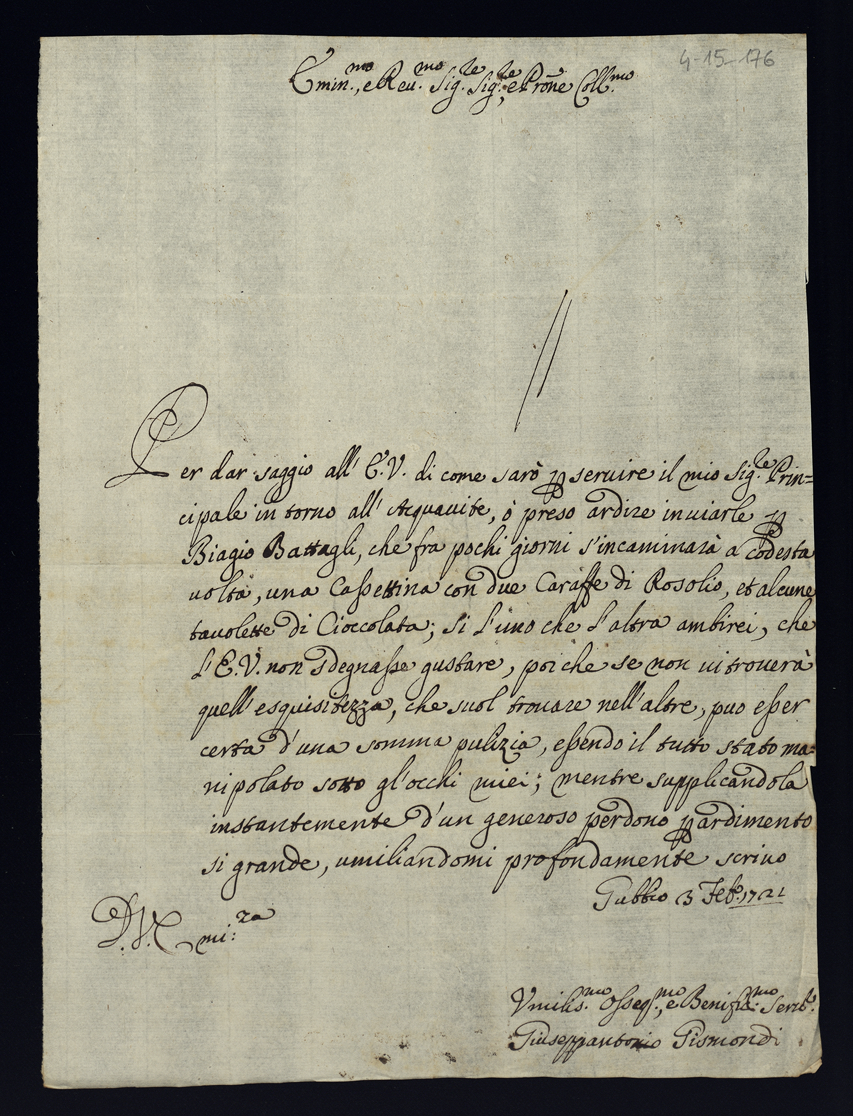 4-15-176
Emin.mo, e Reu.mo Sig.re Sig.re, e Prōne Coll.mo
Per dar saggio all' E.V. di come sarò p servire il mio Sig.re Prin=
cipale in torno all' Acquavite, ò preso ardire inviarle p
Biagio Battagli, che fra pochi giorni s'incaminarà a codesta
volta, una Cassettina con due Caraffe di Rosolio, et alcune
tavolette di Cioccolata; si l'uno che l'altra ambirei, che
l'E.V. non sdegnasse gustare, poiche se non vi trouerà
quell'esquisitezza, che suol trouare nell'altre, puo esser
certa d'una somma pulizia, essendo il tutto stato ma=
nipolato sotto gl'occhi miei; mentre supplicandola
instantemente d'un generoso perdono p ardimento
si grande, umiliandomi profondamente scrivo
Gubbio 3 Feb.o 1721
D.V.E mi:ra
Vmilis.mo Osseq.mo, e Benifit.mo Serv.re
Giuseppantonio Gismondi